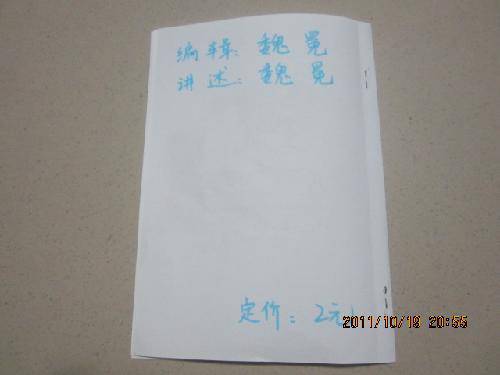 编辑：魏冕
讲述：魏冕
定价：2元
2011/10/19 20:55